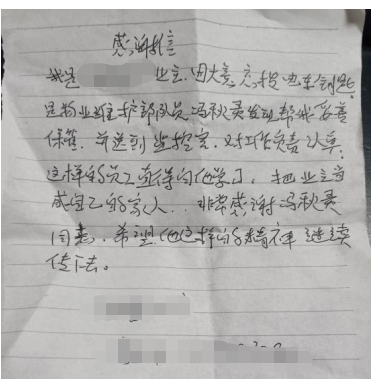 感谢信
我是 业主,因大意充
是物业维护部队员冯秋景发现帮我妥善
保管,并送到监控室,对工作负责认真,
这样的员工值得向他学习,把业主当
成自己的家人..非常感谢冯秋景
同志,希望他这样的精神继续
传下去。